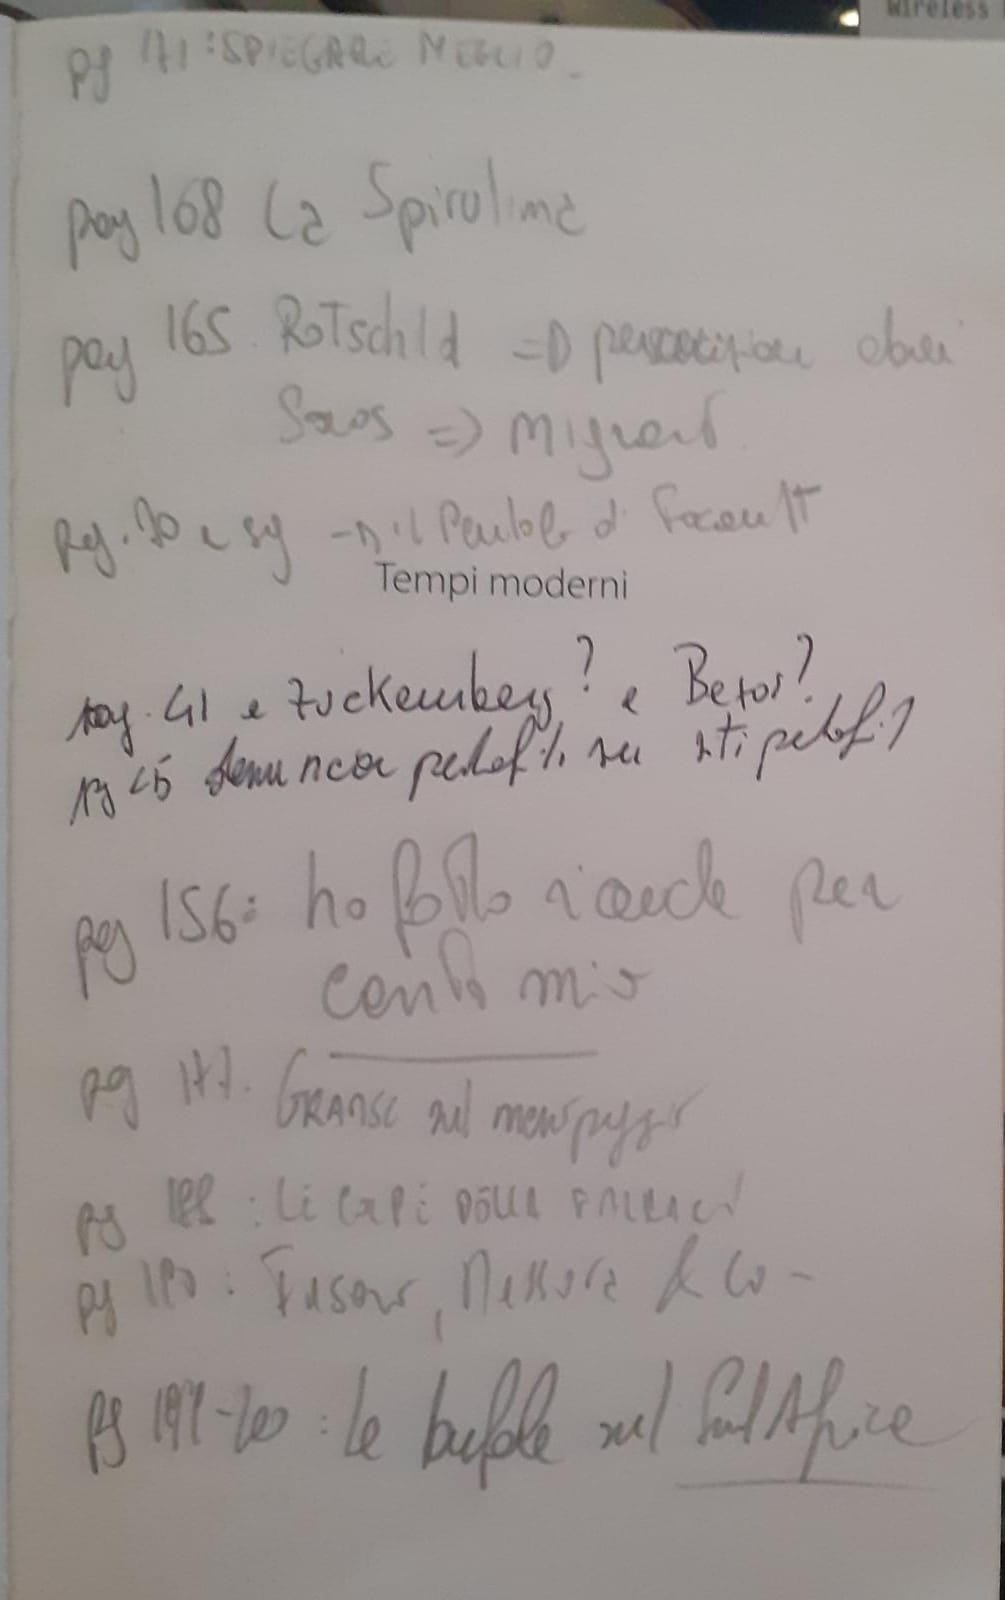 Wireless
pg 171: SPIEGARE MEGLIO
pag 168 La Spirulina
pag 165. Rotschild => persecuzione ebrei
Soros => Migranti
Pag. 30 e sg il Pendolo di Focault
Tempi moderni
pag. 41 e Zuckemberg? e Bezos?
pg 45 pedofili su siti pedofili
pag 156: ho fatto ricerche per
conto mio
pg 177. sul
pg 188: Le capi della
pg 190: Fusaro, Messora & Co -
pg 197-200: le bufale sul Sud Africa